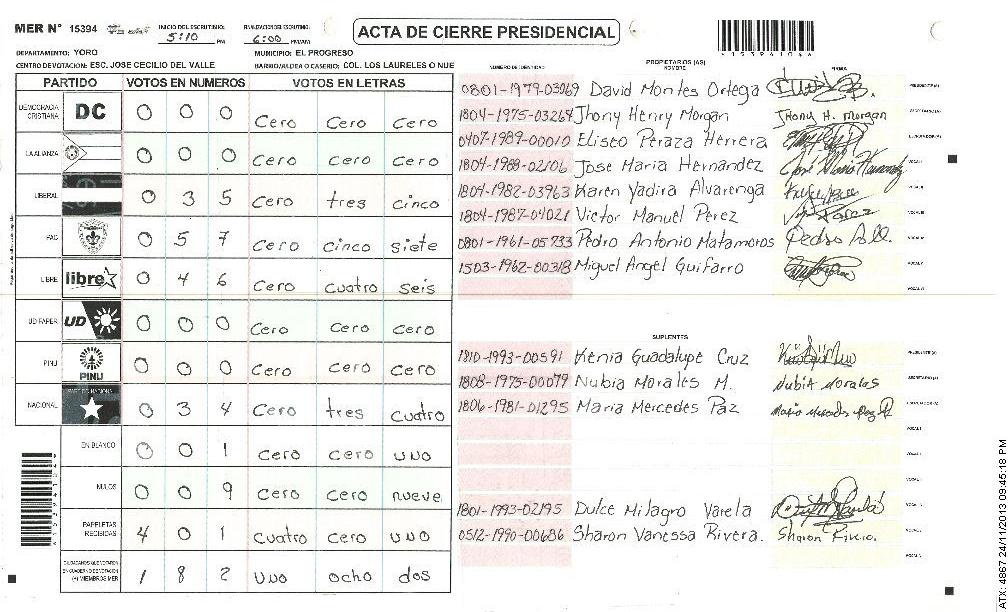 MER N° 15394
INICIO DEL ESCRUTINIO: 5:10 PM
FINALIZACION DEL ESCRUTINIO: 6:00 PM/AM
ACTA DE CIERRE PRESIDENCIAL
DEPARTAMENTO: YORO
MUNICIPIO: EL PROGRESO
CENTRO DE VOTACION: ESC. JOSE CECILIO DEL VALLE
BARRIO/ALDEA O CASERIO: COL. LOS LAURELES O NUE
PARTIDO VOTOS EN NUMEROS VOTOS EN LETRAS
DEMOCRACIA CRISTIANA DC 0 0 0 Cero Cero Cero
LA ALIANZA 0 0 0 Cero Cero Cero
LIBERAL 0 3 5 Cero tres cinco
PAC 0 5 7 Cero cinco siete
LIBRE libre 0 4 6 Cero cuatro seis
UD FAPER UD 0 0 0 Cero Cero Cero
PINU PINU 0 0 0 Cero Cero Cero
NACIONAL 0 3 4 Cero tres cuatro
EN BLANCO 0 0 1 Cero Cero uno
NULOS 0 0 9 Cero Cero nueve
PAPELETAS RECIBIDAS 4 0 1 cuatro cero uno
CIUDADANOS QUE VOTARON EN CUADERNO DE VOTACION (+) MIEMBROS MER 1 8 2 uno ocho dos
NUMERO DE IDENTIDAD PROPIETARIOS (AS) NOMBRE FIRMA
0801-1979-03069 David Montes Ortega PRESIDENTE(A)
1804-1975-03264 Jhony Henry Morgan Jhony H. Morgan SECRETARIO(A)
0407-1989-00010 Eliseo Peraza Herrera ESCRUTADOR(A)
1804-1988-02106 Jose Maria Hernandez José Maria Hernandez VOCAL I
1804-1982-03963 Karen Yadira Alvarenga
1804-1987-04021 Victor Manuel Perez
0801-1961-05733 Pedro Antonio Matamoros
1503-1962-00318 Miguel Angel Guifarro
SUPLENTES
1810-1993-00591 Kenia Guadalupe Cruz PRESIDENTE(A)
1808-1975-00079 Nubia Morales M. Nubia Morales SECRETARIO(A)
1806-1981-01295 Maria Mercedes Paz ESCRUTADOR(A)
1801-1993-02195 Dulce Milagro Varela
0512-1990-00686 Sharon Vanessa Rivera. Sharon Rivera.
ATX: 4867 24/11/2013 09:45:18 PM